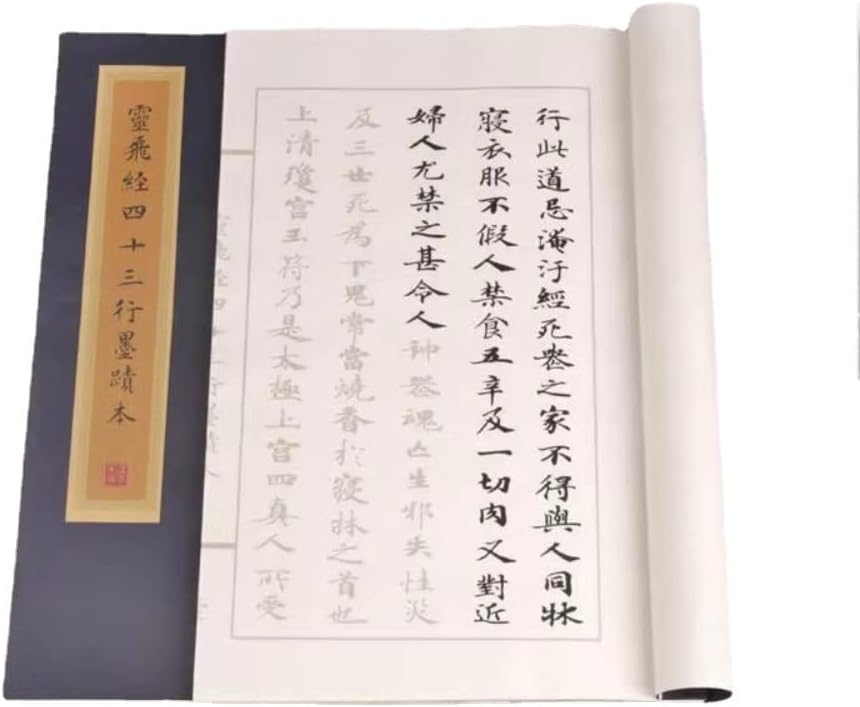 靈飛經四十三行墨蹟本
行此道忌淹汙經死喪之家不得與人同牀
寢衣服不假人禁食五辛及一切肉又對近
婦人尤禁之甚令人神喪魂亡生邪失性災
及三世死為下鬼常當燒香於寢牀之首也
上清瓊宮玉符乃是太極上宮四真人所受